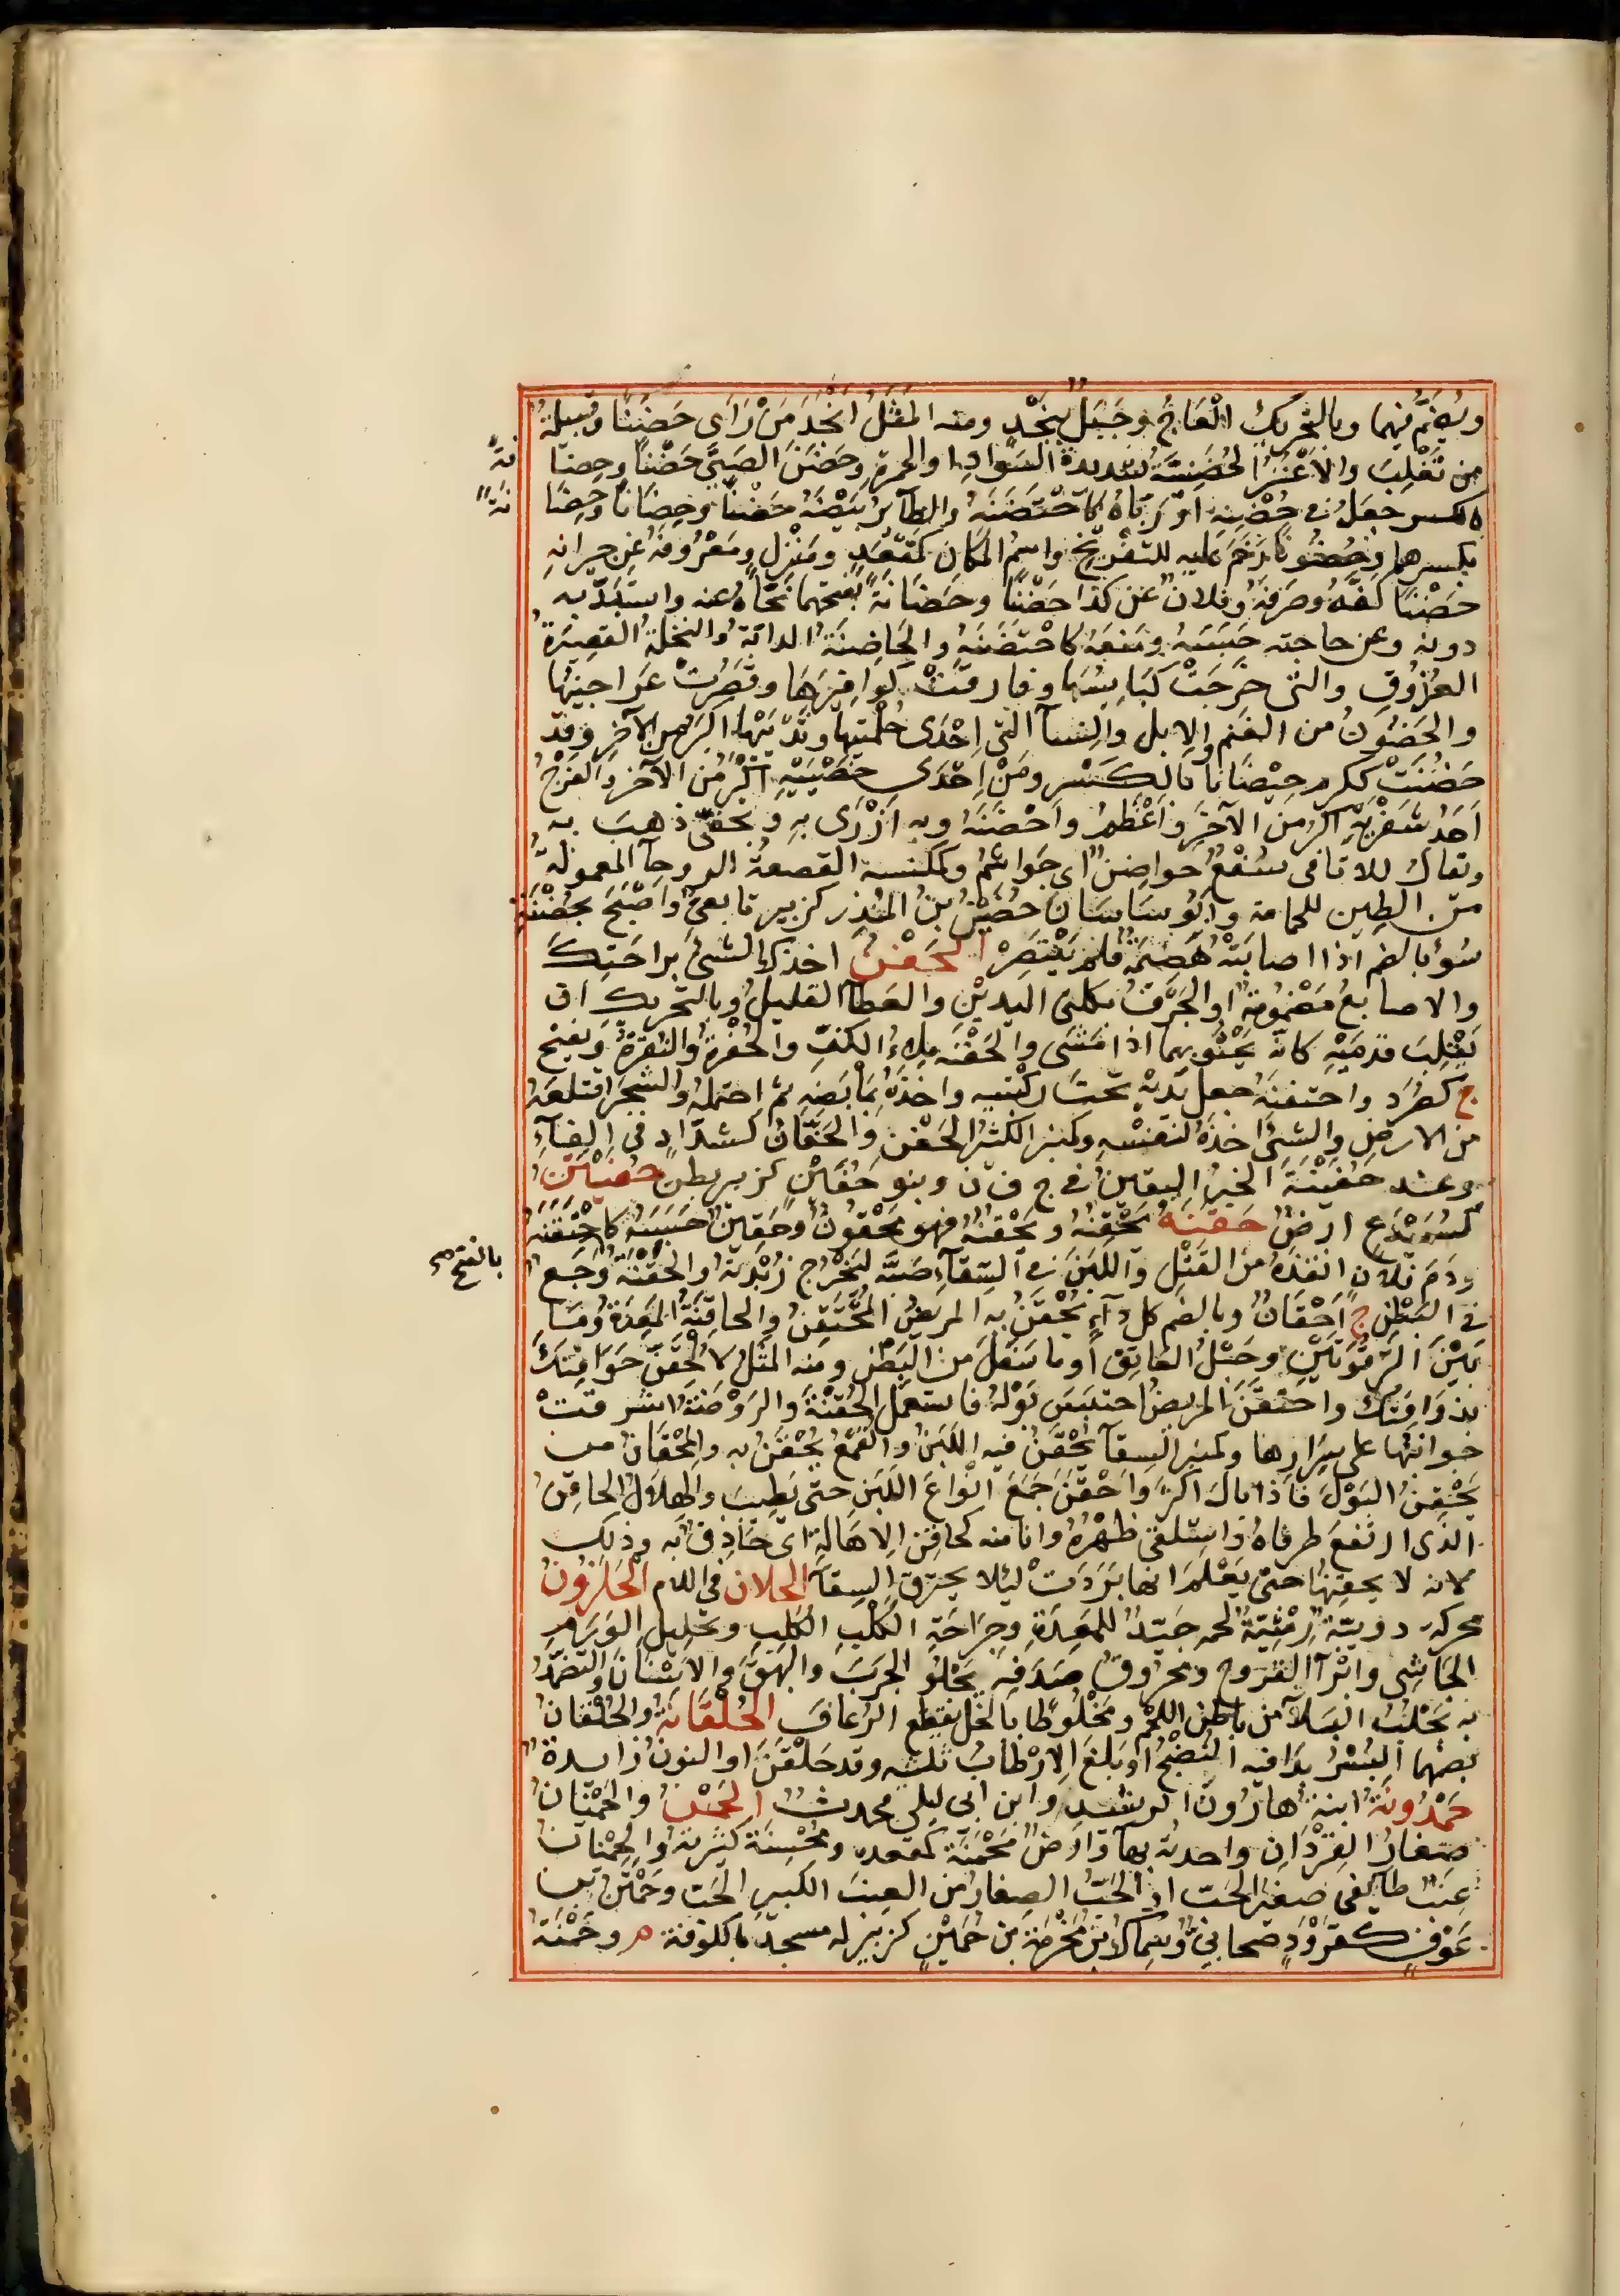 ويُضَمُّ فيهما وبالتحريك العَاجُ وجَبَلٌ بنَجْدٍ ومنه المثَلُ أنْجَدَ مَنْ رَأى حَضَنًا وقَبيلةٌ
من تَغْلِبَ والأعْنُزُ الحَضَنِيَّةُ شديدة السَّوادِ او الحمرةِ وحَضَنَ الصَبيَّ حَضْنًا وحِضانةً
بالكسر جعلَهُ في حِضْنِه او رَبَّاهُ كاحْتَضَنَهُ والطائرُ بَيْضَهُ حَضْنًا وحِضَانًا وحِضانةً
بكسرهما وحُضُونًا رَخَمَ عليه للتفْريخِ واسمُ المكان كمَقْعَدٍ ومَنْزِلٍ ومَعْرُوفَهُ عن جيرانِه
حَضْنًا كَفَّهُ وصَرَفَهُ وفلانٌ عن كذا حَضْنًا وحَضَانَةً بفتحهما نَحَّاهُ عنه واسْتَبَدَّ به
دونَه وعن حاجته حَبَسَهُ ومَنَعَهُ كاحْتَضَنَهُ والحَاضِنَةُ الداية والنخلة القصِيرَةُ
العُذُوقِ والتي خَرَجَتْ كَبَايِسُها وفارقَتْ كوافِيرَها وقَصُرَتْ عَراجينُها
والحَضُونُ من الغنم والإبل والنساء التي إحْدَى حَلَمَتيها وثَدْيَيْها اكبرُ من الآخر وقد
حَضُنَتْ ككرم حِضَانًا بالكسر ومَنْ إحْدَى خُصْيَيْهِ أكْبَرُ من الآخر والفَرْجُ
أحَدُ شُفْرَيْهِ اكبرُ من الآخَرِ وأعْظَمُ وأحْضَنَهُ وبه أزْرَى به وبحقّي ذهبَ به
وتقال للاثافي سُفْعٌ حواضِنُ أي جَوَاثِمُ وكمكنسة القصعةُ الروحاء المعمولة
من الطين للحمامة وأبُو ساسَانَ حُضَيْنُ بنُ المُنْذِر كزبير تابعيٌّ وأصْبَحَ بحُضْنَةِ
سُوءٍ بالضم اذا اصابَتْهُ هَضِيمَةٌ فلم يَنْتَصِرْ الحَفْنُ اخذك الشيءَ براحَتِكَ
والاصابعُ مَضْمُومَةٌ او الجَرْفُ بكلتَي اليديْنِ والعَطاء القليلُ وبالتحريك ان
يَقْلِبَ قدمَيْهِ كأنَّه يَحْثُو بهما اذا مَشَى والحَفْنَة مِلءُ الكفِّ والحُفْرَةُ والنُقْرَةُ ويفتح
ج كصُرَد واحتفنَهُ جعل يدَيْهِ تحت ركبتيه واخذَهُ بمَأبَضِهِ ثم احتملهُ والشجَرَ اقتلعَهُ
من الارض والشيءَ اخذَهُ لنفْسِهِ وكمنبر الكثيرُ الحَفْنِ والحَفَّانُ كشدَّادٍ في الفاءِ
وعند حَفِينَةَ الخبرُ اليقينُ في ج ف ن وبنو حُفَيْنٍ كزبير بطن حفيتن
كسُمَيْدَعٍ ارضٌ حَقَنَهُ يَحْقِنُهُ ويَحْقُنُهُ فهو مَحْقُونٌ وحَقِينٌ حَبَسَهُ كاحْتَقَنَهُ
ودَمَ فلان انقذهُ من القَتْلِ واللبَنَ في السِّقاءِ صَبَّه ليُخْرِجَ زُبْدَتَهُ والحَقْنَةُ وَجَعٌ بالفتح صح
في البَطْن ج أحْقَانٌ وبالضم كل دآءٍ يُحْقَنُ به المريضُ المُحْتَقِنُ والحاقِنَةُ المَعِدَةُ ومَا
بَيْنَ التَّرْقُوَتَيْنِ وحَبْلُ العاتِقِ أو ما سَفَلَ من البَطْن ومنه المثَلُ لأُلْحِقَنَّ حَوَاقِنَكَ
بذَوَاقِنِكَ واحتَقَنَ المريضُ احتبَسَ بَوْلُهُ فاستعمل الحُقْنَةَ والرَوْضَةُ اشرفتْ
جوانِبُها على سَرَارِها وكمنبر السِقآء يُحْقَنُ فيه اللبَنُ والقِمَعُ يُحْقَنُ به والمِحْقَانُ من
يَحْقِنُ البَوْلَ فاذا بالَ اكثَرَ وأحْقَنَ جَمَعَ انْواعَ اللَبَنِ حتى يَطِيبَ والهِلالُ الحاقِنُ
الذي ارتفعَ طرفاهُ واستلقى ظَهْرُهُ وانا منه كحاقِنِ الإهالةِ أي حَاذِقٌ به وذلك
لانه لا يحقِنُها حتى يَعْلَمَ انها بَرَدَتْ لئلا يحترق السِقآء الحلان في اللام الحَلَزُونُ
محركة دويبّة رِمْثِيَّة لحمه جَيّدٌ للمَعِدَةِ وجراحَةِ الكَلْبِ الكَلِبِ وتحليلِ الوَرَمِ
الجَاسِي وابْراء القروح ومحروقُ صَدَفِهِ يَجْلُو الجرَبَ والبَهَقَ والاسْنَانَ والتضَمُّدُ
به يَجْذِبُ السلآء من باطن اللحْم ومَخْلُوطًا بالخل يقطع الرعافَ الحُلْقَانَةُ والحُلْقَانُ
بضمهما البُسْرُ بدا فيه النُضْجُ او بلغَ الارْطابُ ثلثيه وقد حَلْقَنَ او النون زايدة
حَمْدُونَةُ ابنة هارُونَ الرشيدِ وابن ابي ليلى محدثٌ الحَمْنُ والحَمْنَانُ
صغار القِرْدَانِ واحدته بهآء وارضٌ مَحْمَنَة كمقعدة ومُحْمِنَة كثيرته والحَمْنَانُ
عنبٌ طايفي صغير الحَب او الحَبُّ الصغارُ من العنب الكبير الحَب وحَمْنَن بن
عَوْفٍ كقَرْدَدٍ صحابيٌّ وسماكُ بن مَخْرَمَةَ بن حُمَيْنٍ كزبير له مسجد بالكوفة م وحَمْنَةُ